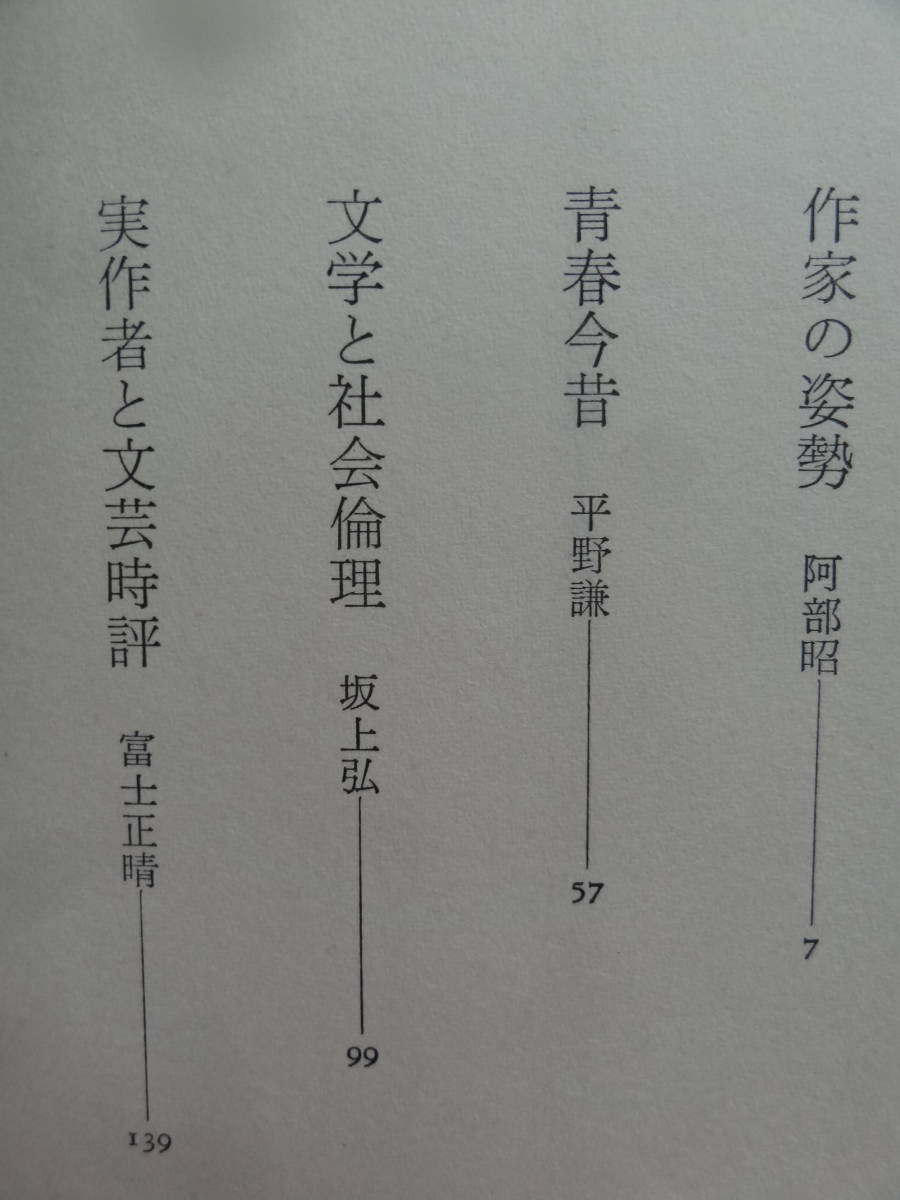 作家の姿勢 阿部昭 7
青春今昔 平野謙 57
文学と社会倫理 坂上弘 99
実作者と文芸時評 富士正晴 139